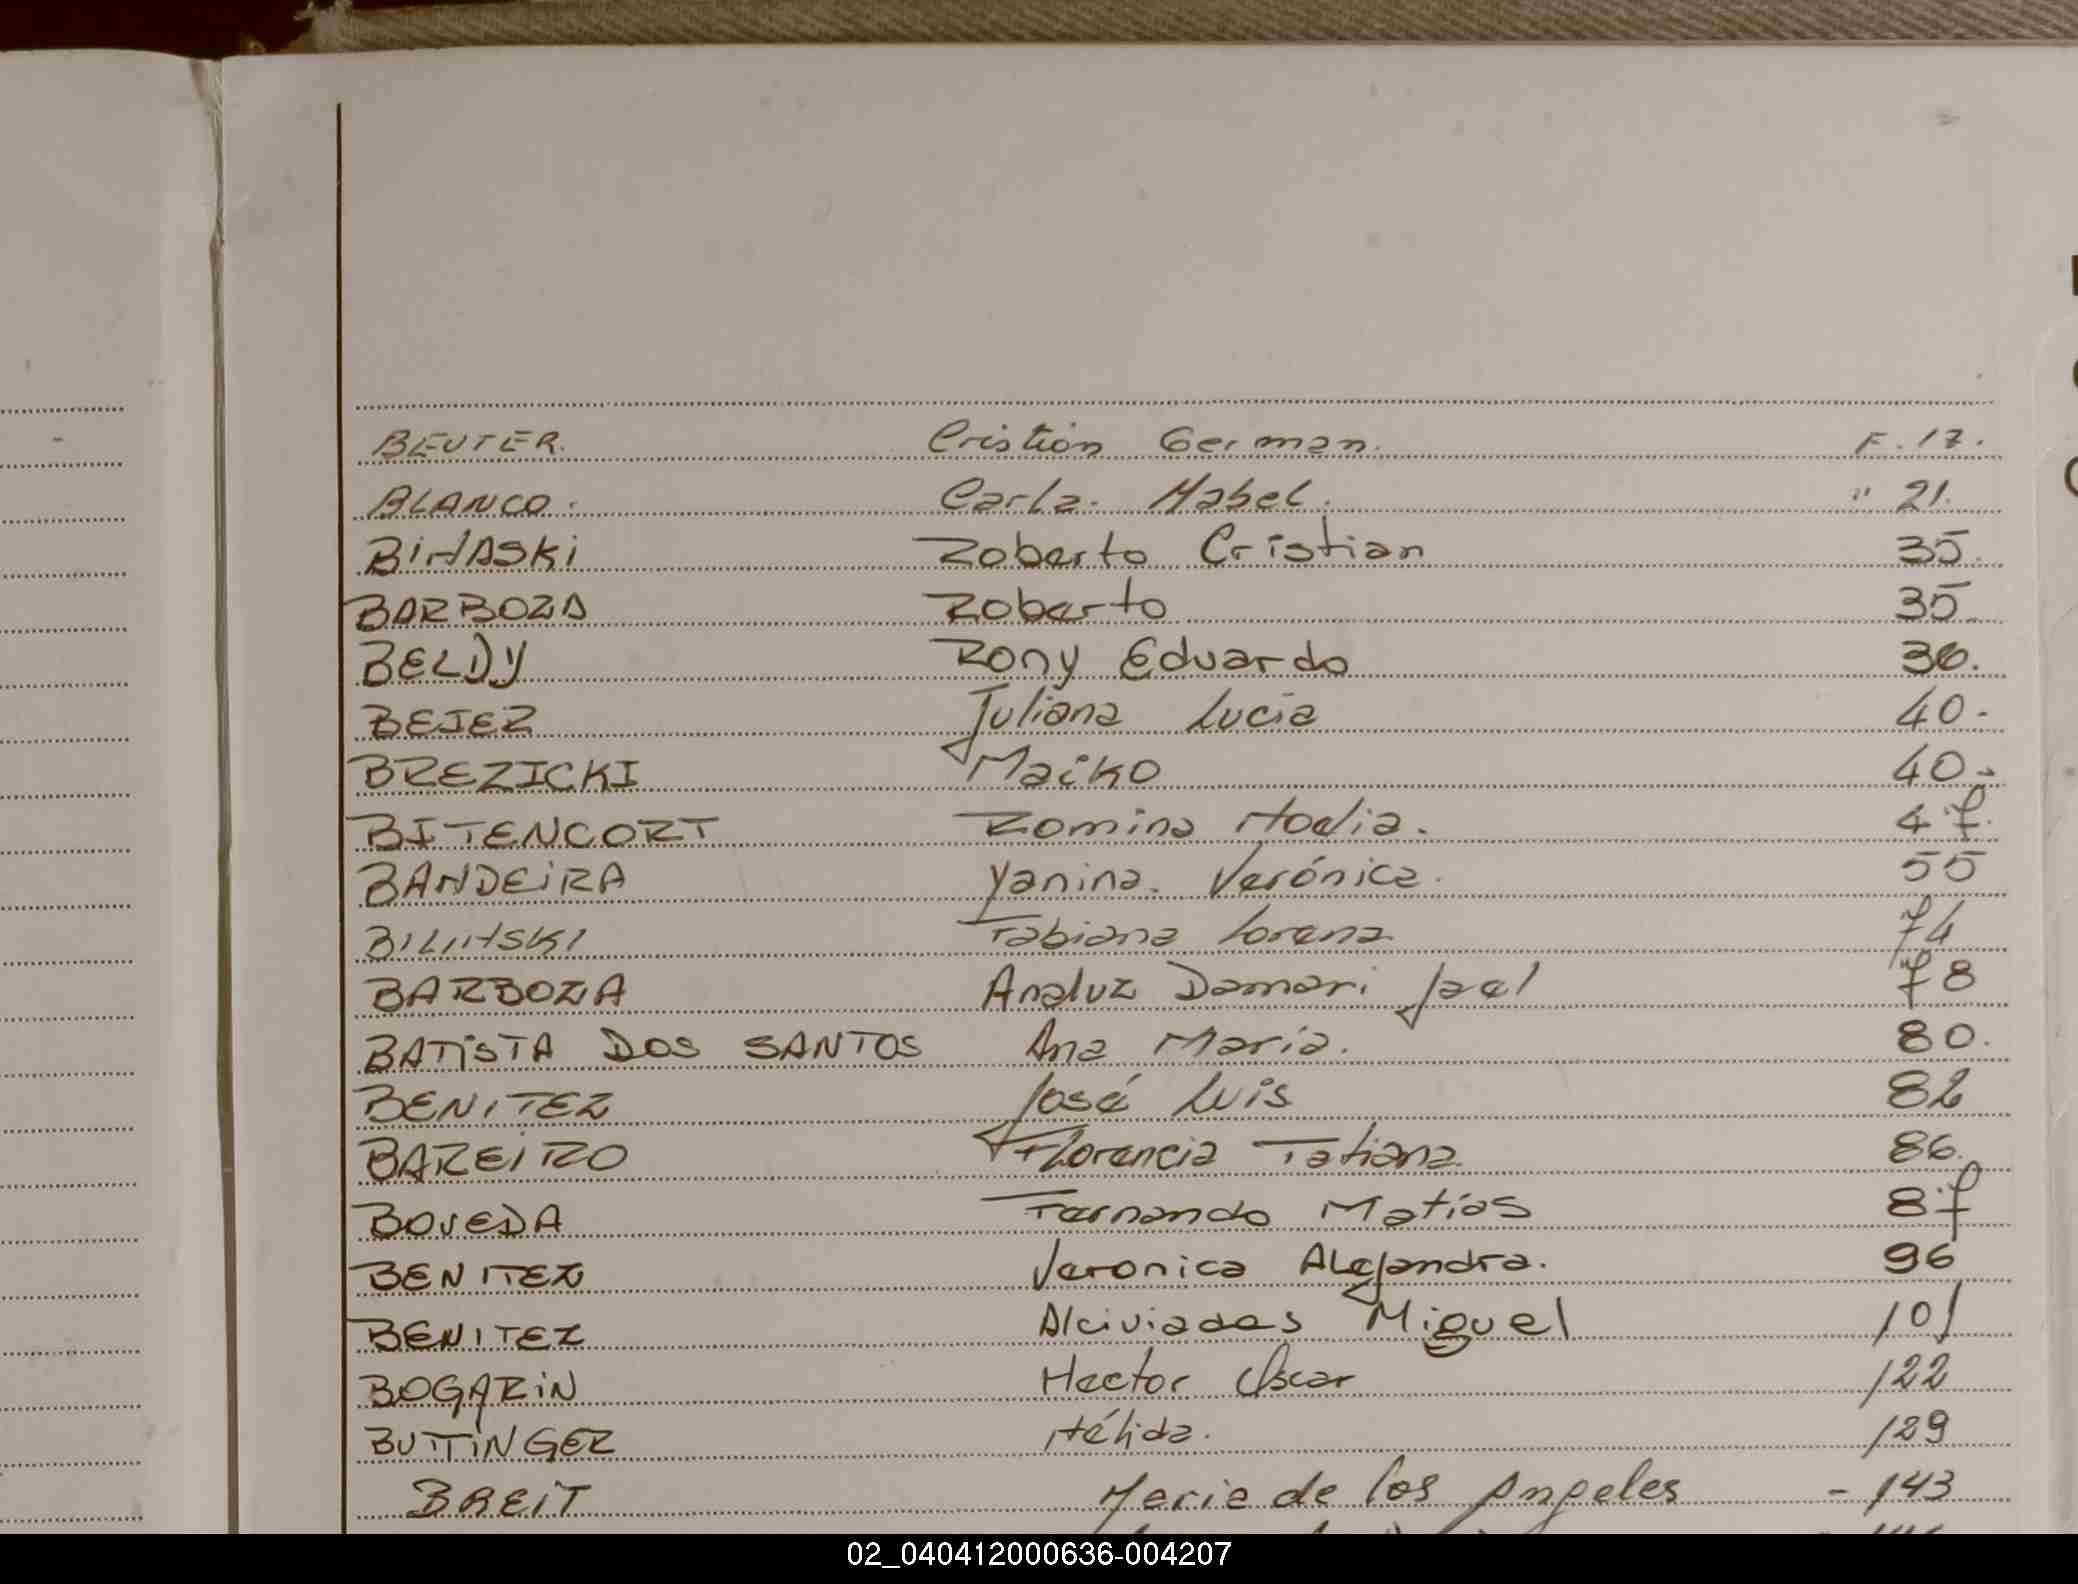 BEUTER. Cristián German. F. 17.
BLANCO. Carla. Mabel. " 21.
BIHASKi Roberto Cristian 35.
BARBOZA Roberto 35
BELDY Rony Eduardo 36.
BEJER Juliana Lucia 40.
BREZICKI Maiko 40.
BITENCORT Romina 47.
BANDEiRA Yanina. Verónica. 55
Fabiana Lorena 74
BARBOZA Analuz Damari Jael 78
BATiSTA DOS SANTOS Ana Maria. 80.
BENITEZ José Luis 82
BAREiRO Florencia Tatiana 86.
BOVEDA Fernando Matías 87
BENITEZ Veronica Alejandra. 96
BENITEZ Alciviades Miguel 101
BOGARiN Hector Oscar 122
BUTTiNGER Hélida. 129
BREiT Maria de los Angeles - 143
02_040412000636-004207